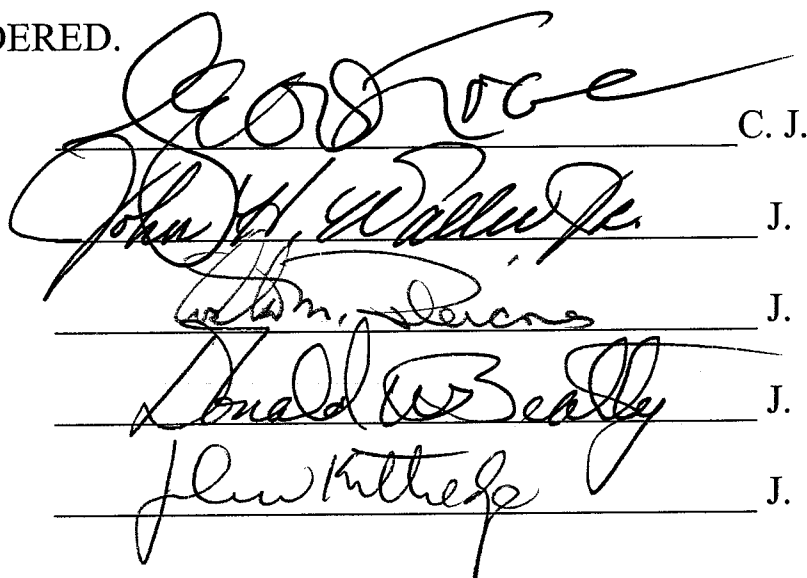 DERED.
C. J.
John H. Waller, Jr. J.
J.
Donald W Beatty J.
John Kittredge J.